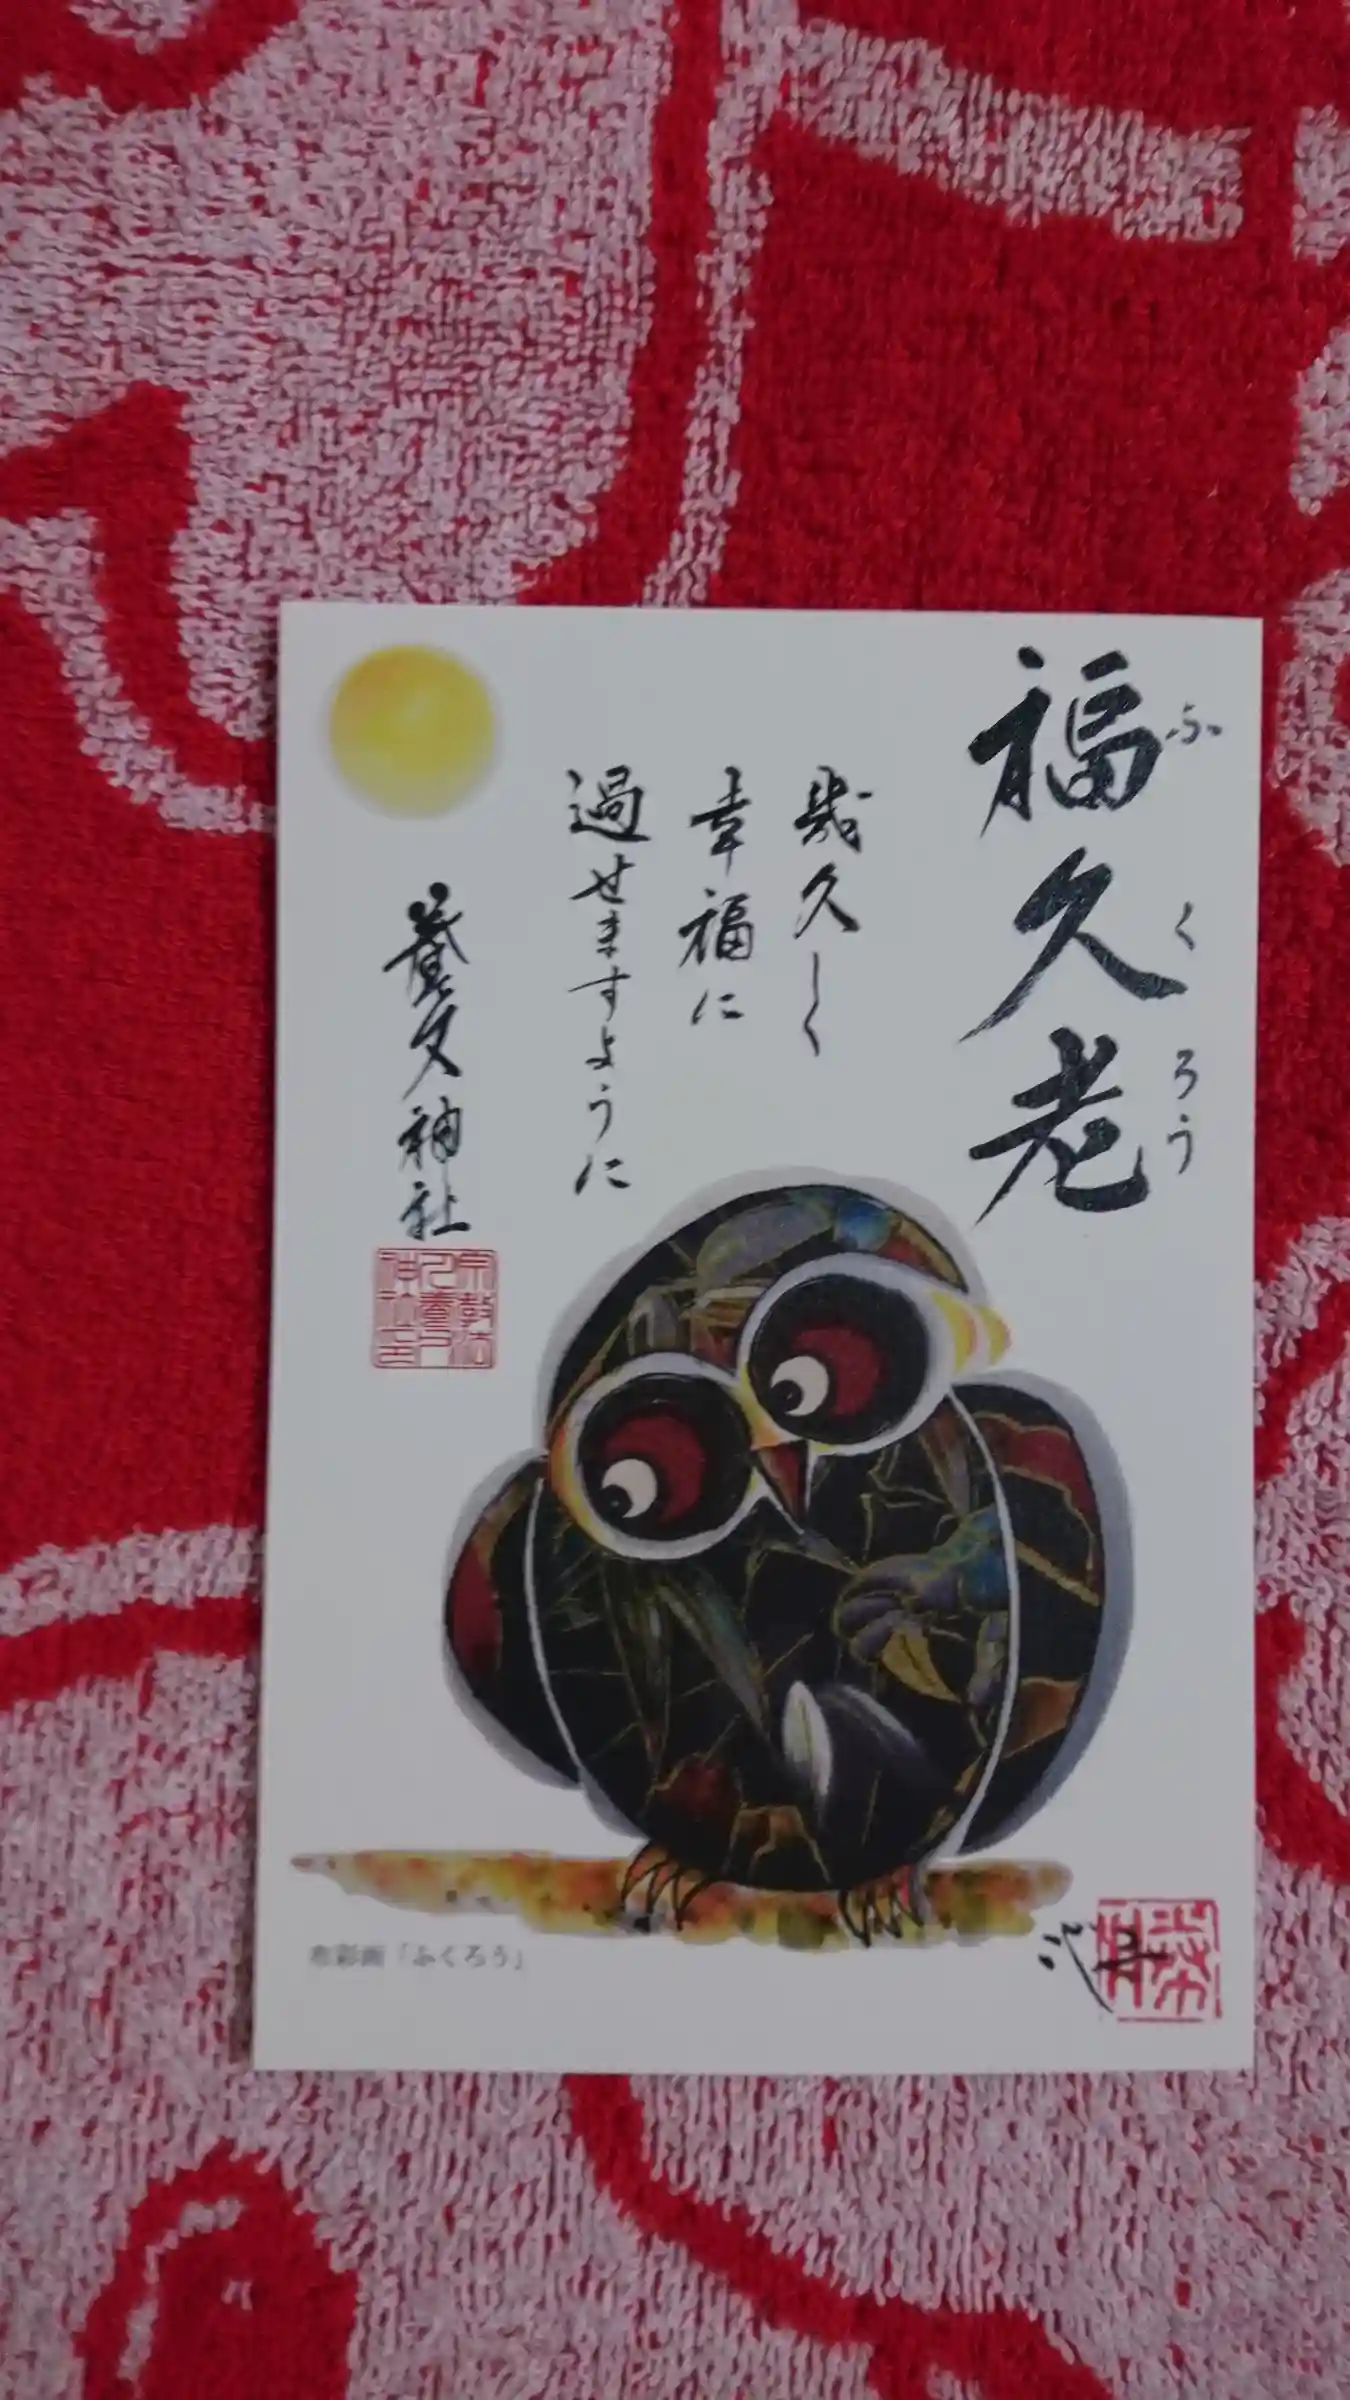 福久老
ふくろう
幾久しく
幸福に
過せますように
養父神社
布彩画「ふくろう」